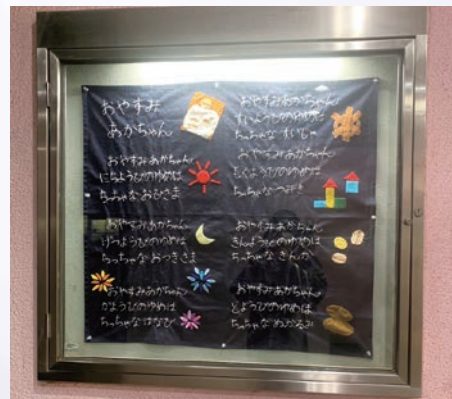 おやすみ
あかちゃん
おやすみあかちゃん
にちようびのゆめは
ちっちゃなおひさま
おやすみあかちゃん
げつようびのゆめは
ちっちゃなおつきさま
おやすみあかちゃん
かようびのゆめは
ちっちゃなはなび
おやすみあかちゃん
すいようびのゆめは
ちっちゃなすいしゃ
おやすみあかちゃん
もくようびのゆめは
ちっちゃなつみき
おやすみあかちゃん
きんようびのゆめは
ちっちゃなきんか
おやすみあかちゃん
どようびのゆめは
ちっちゃな